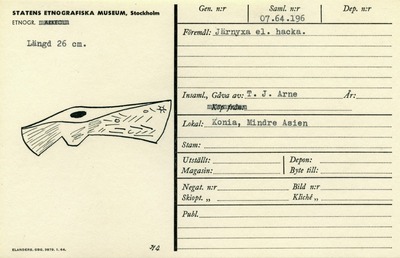 STATENS ETNOGRAFISKA MUSEUM, Stockholm
ETNOGR.
Längd 26 cm.
ELANDERS, GBG. 5672. 1, 46.
Gen. n:r
Saml. n:r
Dep. n:r
07.64.196
Föremål: Järnyxa el. hacka.
Insaml., Gåva av: T. J. Arne År:
Köp från:
Lokal: Konia, Mindre Asien
Stam:
Utställt:
Depon:
Magasin:
Byte till:
Negat. n:r
Bild n:r
Skiopt. „
Kliché „
Publ.